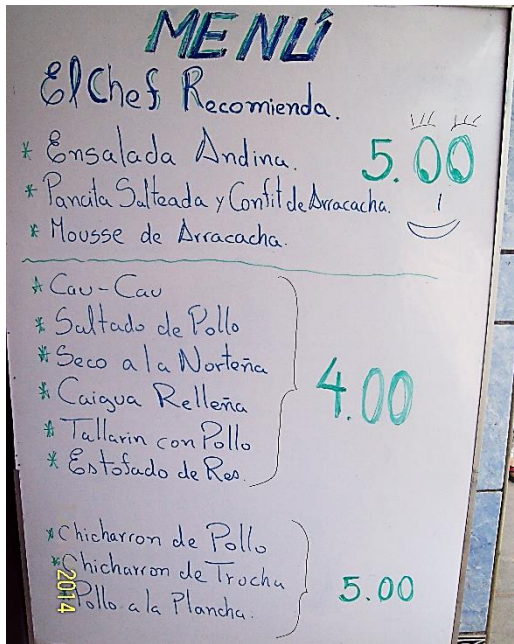 MENÚ
El Chef Recomienda.
* Ensalada Andina. 5.00
* Pancita Salteada y Confit de Arracacha.
* Mousse de Arracacha.
* Cau-Cau
* Saltado de Pollo
* Seco a la Norteña
* Caigua Relleña
* Tallarin con Pollo
* Estofado de Res.
4.00
* Chicharron de Pollo
* Chicharron de Trucha
Pollo a la Plancha.
5.00
2014